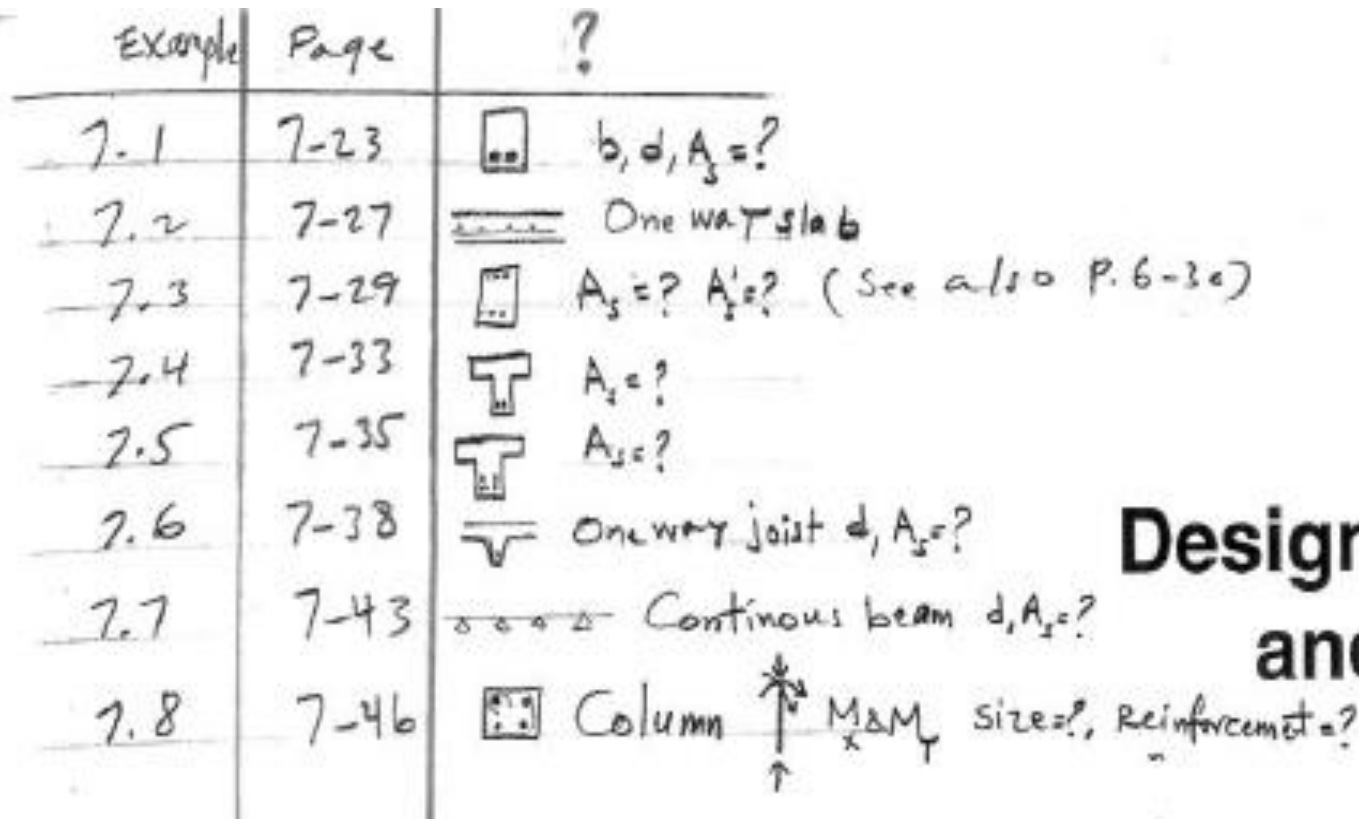 Example Page ?
7.1 7-23 b, d, As=?
7.2 7-27 One way slab
7.3 7-29 As=? A's=? (See also P. 6-30)
7.4 7-33 As=?
7.5 7-35 As=?
7.6 7-38 One way joist d, As=?
Design
7.7 7-43 Continous beam d, As=?
and
7.8 7-46 Column Mx & My size=?, Reinforcemnt=?